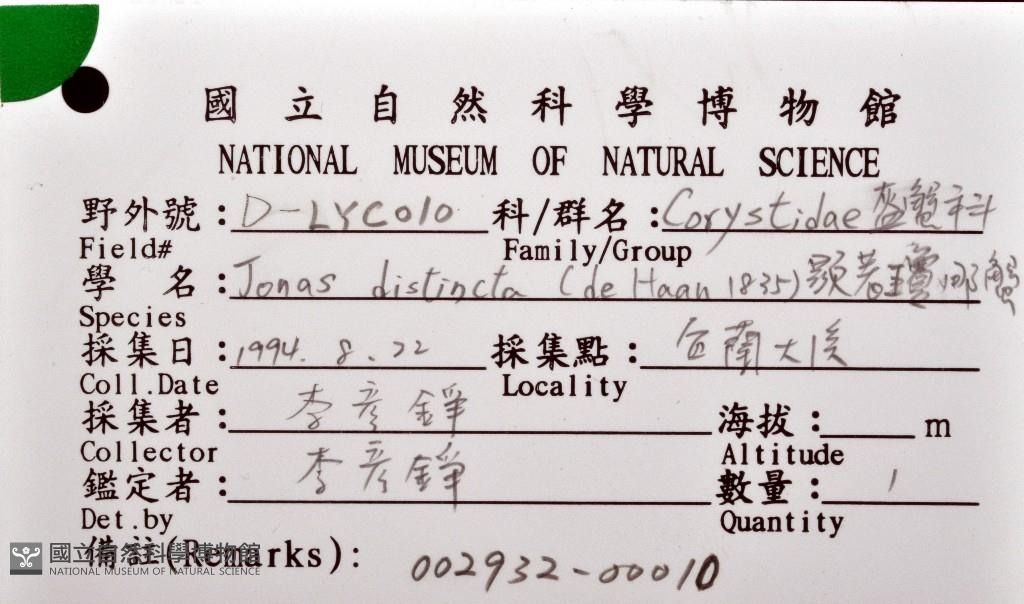 國立自然科學博物館
NATIONAL MUSEUM OF NATURAL SCIENCE
野外號：D-LYC010 科/群名：Corystidae 盔蟹科
Field# Family/Group
學 名：Jonas distincta (de Haan 1835) 顯著瓊娜蟹
Species
採集日：1994. 8. 22 採集點：宜蘭大溪
Coll.Date Locality
採集者：李彥錚 海拔： m
Collector Altitude
鑑定者：李彥錚 數量：1
Det.by Quantity
備註(Remarks):
002932-00010
國立自然科學博物館
NATIONAL MUSEUM OF NATURAL SCIENCE